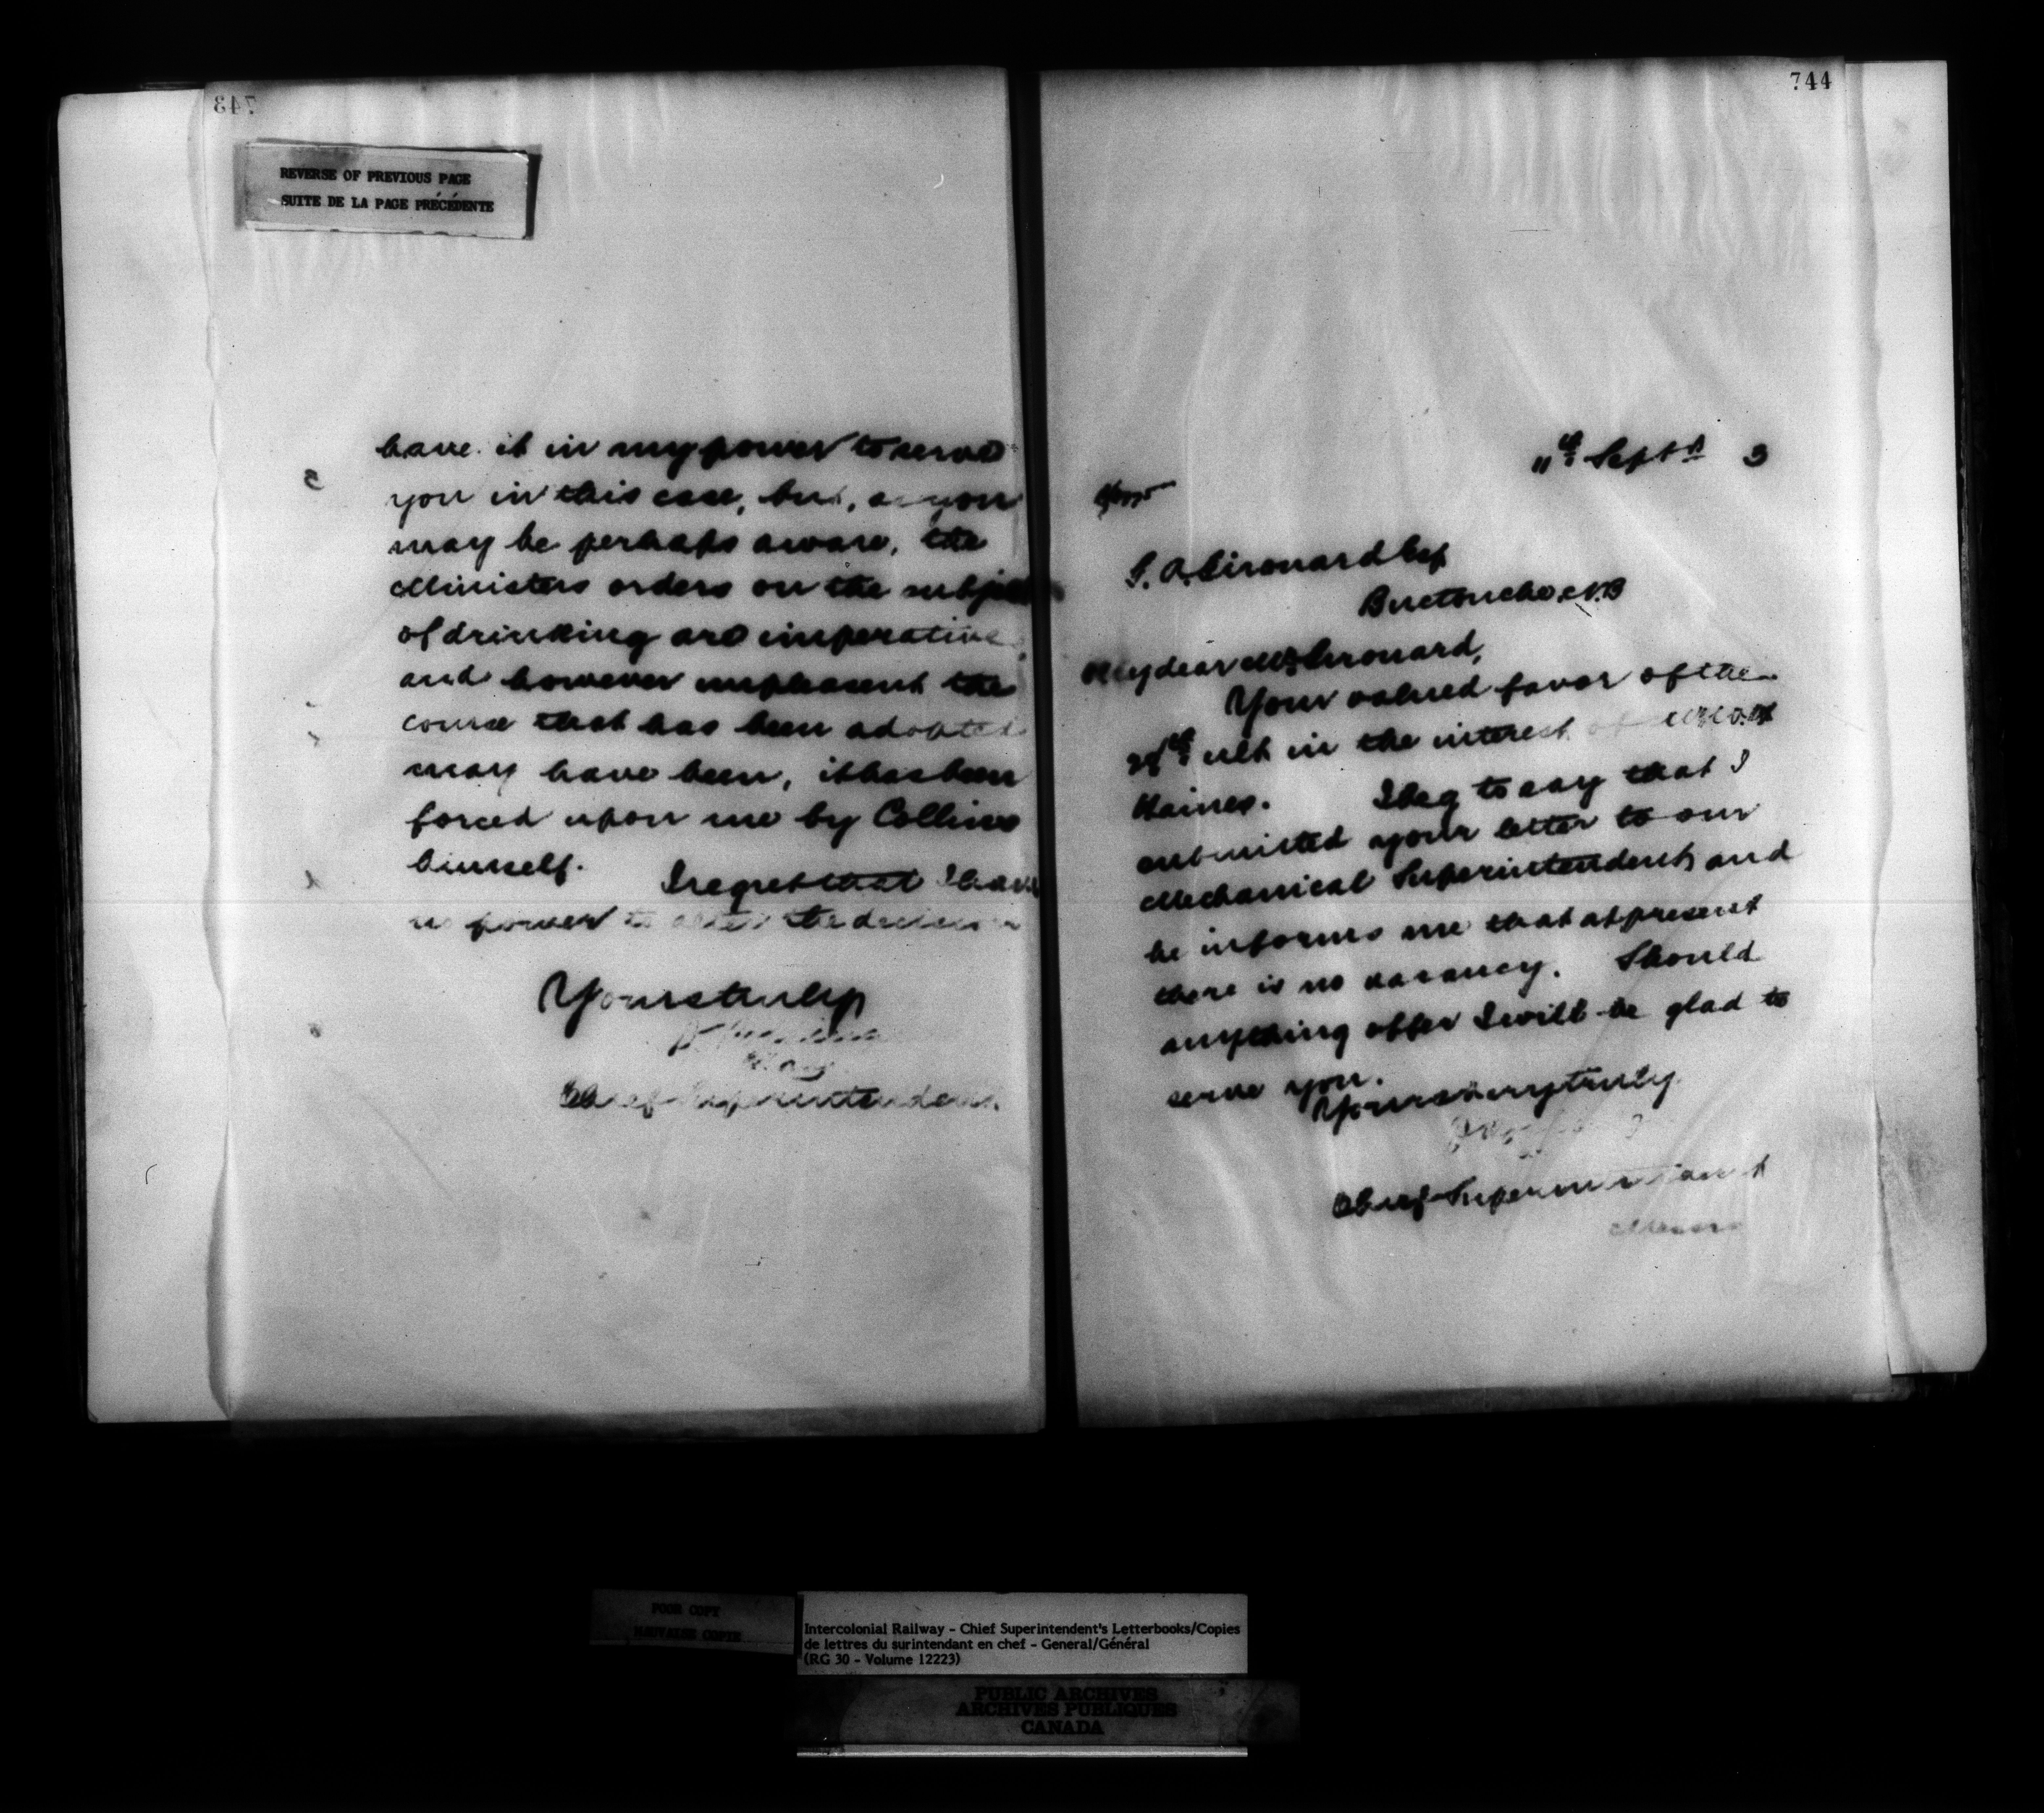 743
REVERSE OF PREVIOUS PAGE
SUITE DE LA PAGE PRÉCÉDENTE
have it in my power to serve
you in this case, but, as you
may be perhaps aware, the
Ministers orders on the subject
of drinking are imperative,
and however unpleasant the
course that has been adopted
may have been, it has been
forced upon me by Collins
himself. I regret that I have
no power to alter the decision
Yours truly
Chief Superintendent
744
11th Septr 3
Girouard Esq
Buctouche, N.B
My dear Mr Girouard,
Your valued favor of the
ult in the interest of
Haines. I beg to say that I
submitted your letter to our
Mechanical Superintendent, and
he informs me that at present
there is no vacancy. Should
anything offer I will be glad to
serve you.
Yours very truly
Chief Superintendent
POOR COPY
MAUVAISE COPIE
Intercolonial Railway - Chief Superintendent's Letterbooks/Copies
de lettres du surintendant en chef - General/Général
(RG 30 - Volume 12223)
PUBLIC ARCHIVES
ARCHIVES PUBLIQUES
CANADA